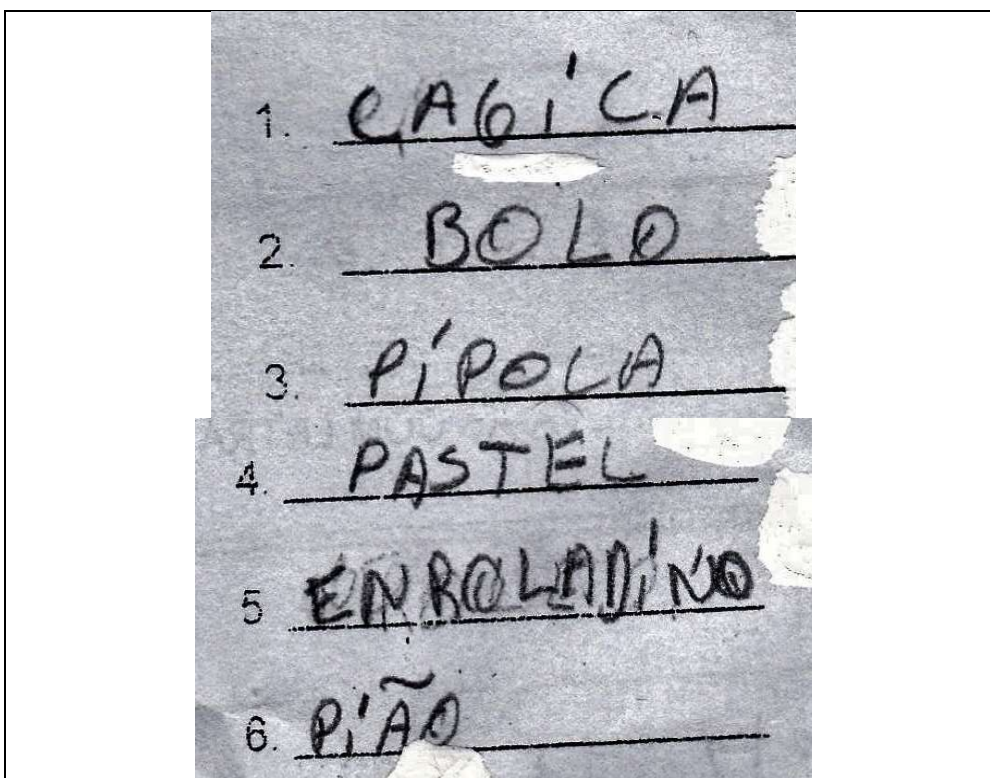 1. CAGÍCA
2. BOLO
3. PÍPOLA
4. PASTEL
5 ENROLADÍNO
6. PÍÃO